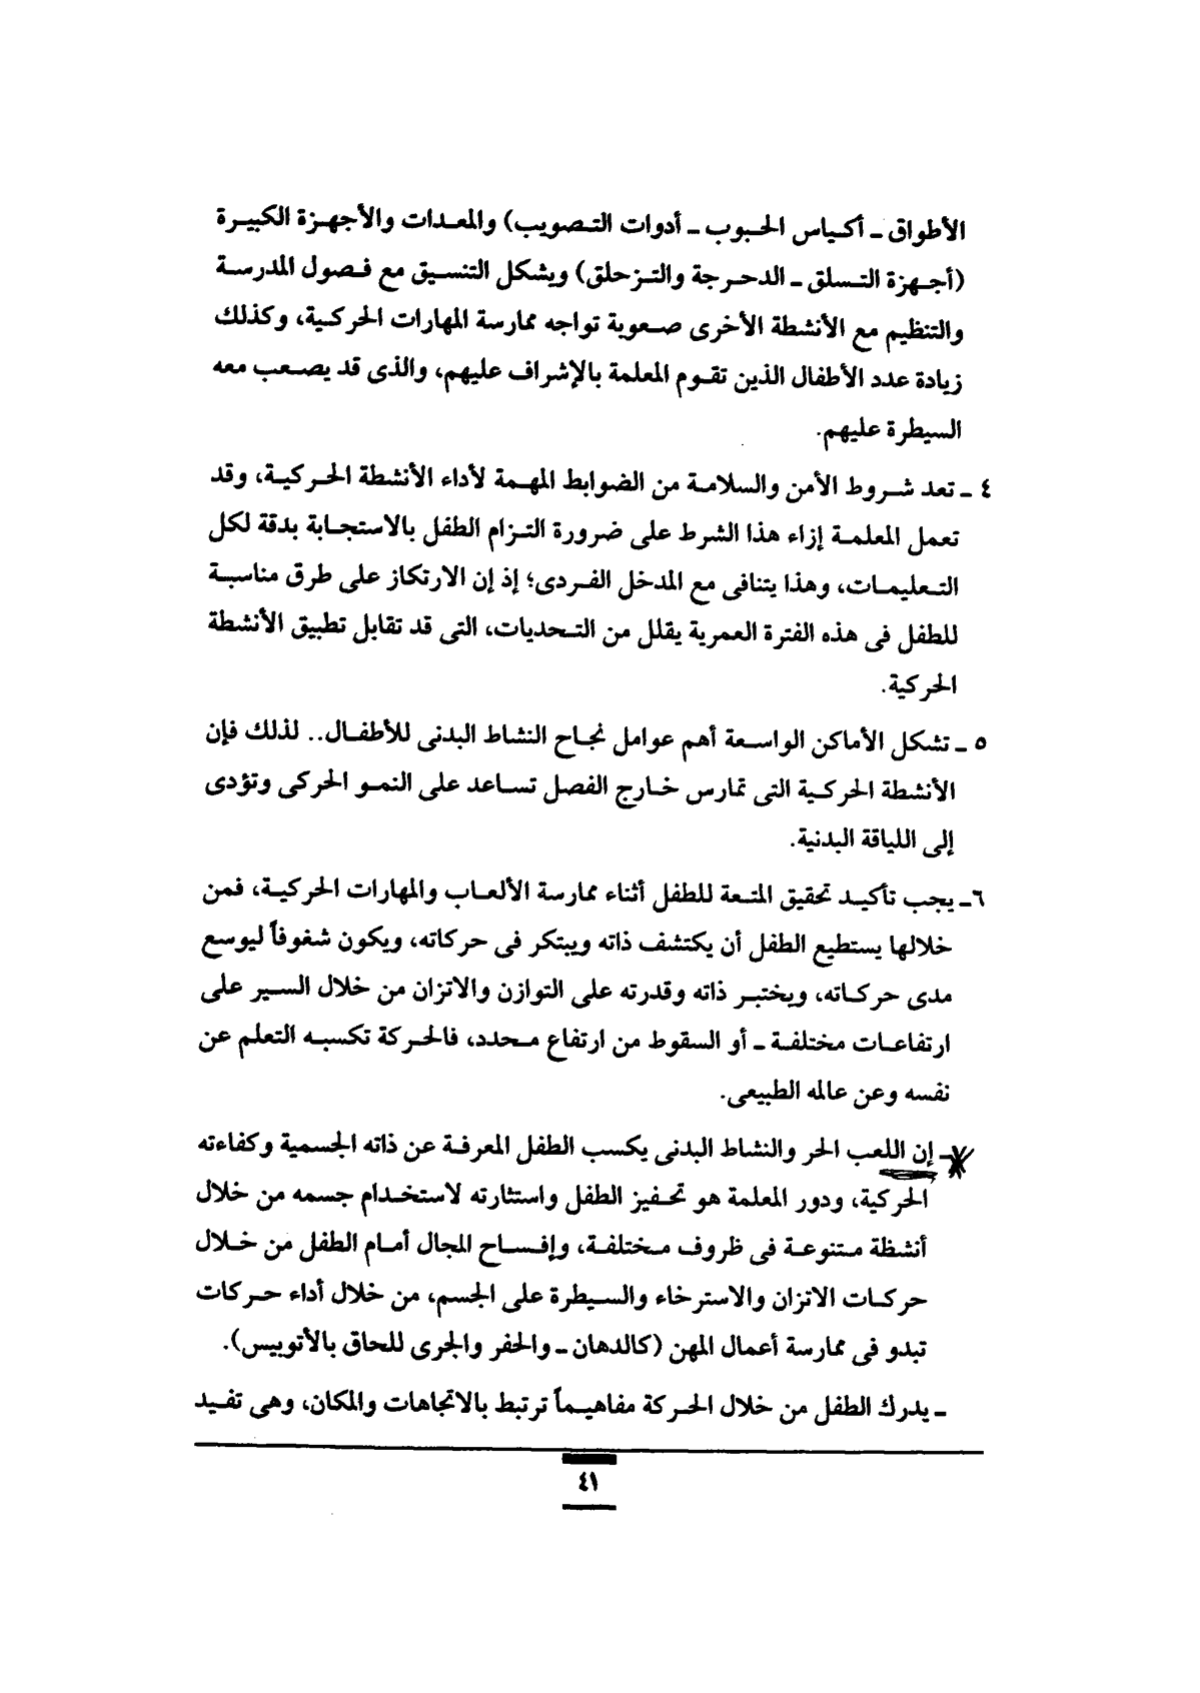 الأطواق ـ أكياس الحبوب ـ أدوات التصويب) والمعدات والأجهزة الكبيرة
(أجهزة التسلق ـ الدحرجة والتزحلق) ويشكل التنسيق مع فصول المدرسة
والتنظيم مع الأنشطة الأخرى صعوبة تواجه ممارسة المهارات الحركية، وكذلك
زيادة عدد الأطفال الذين تقوم المعلمة بالإشراف عليهم، والذى قد يصعب معه
السيطرة عليهم.
٤ ـ تعد شروط الأمن والسلامة من الضوابط المهمة لأداء الأنشطة الحركية، وقد
تعمل المعلمة إزاء هذا الشرط على ضرورة التزام الطفل بالاستجابة بدقة لكل
التعليمات، وهذا يتنافى مع المدخل الفردى؛ إذ إن الارتكاز على طرق مناسبة
للطفل فى هذه الفترة العمرية يقلل من التحديات، التى قد تقابل تطبيق الأنشطة
الحركية.
٥ ـ تشكل الأماكن الواسعة أهم عوامل نجاح النشاط البدنى للأطفال.. لذلك فإن
الأنشطة الحركية التى تمارس خارج الفصل تساعد على النمو الحركى وتؤدى
إلى اللياقة البدنية.
٦ـ يجب تأكيد تحقيق المتعة للطفل أثناء ممارسة الألعاب والمهارات الحركية، فمن
خلالها يستطيع الطفل أن يكتشف ذاته ويبتكر فى حركاته، ويكون شغوفاً ليوسع
مدى حركاته، ويختبر ذاته وقدرته على التوازن والاتزان من خلال السير على
ارتفاعات مختلفة ـ أو السقوط من ارتفاع محدد، فالحركة تكسبه التعلم عن
نفسه وعن عالمه الطبيعى.
٧ـ إن اللعب الحر والنشاط البدنى يكسب الطفل المعرفة عن ذاته الجسمية وكفاءته
الحركية، ودور المعلمة هو تحفيز الطفل واستثارته لاستخدام جسمه من خلال
أنشظة متنوعة فى ظروف مختلفة، وإفساح المجال أمام الطفل من خلال
حركات الاتزان والاسترخاء والسيطرة على الجسم، من خلال أداء حركات
تبدو فى ممارسة أعمال المهن (كالدهان ـ والحفر والجرى للحاق بالأتوبيس).
ـ يدرك الطفل من خلال الحركة مفاهيماً ترتبط بالاتجاهات والمكان، وهى تفيد
٤١